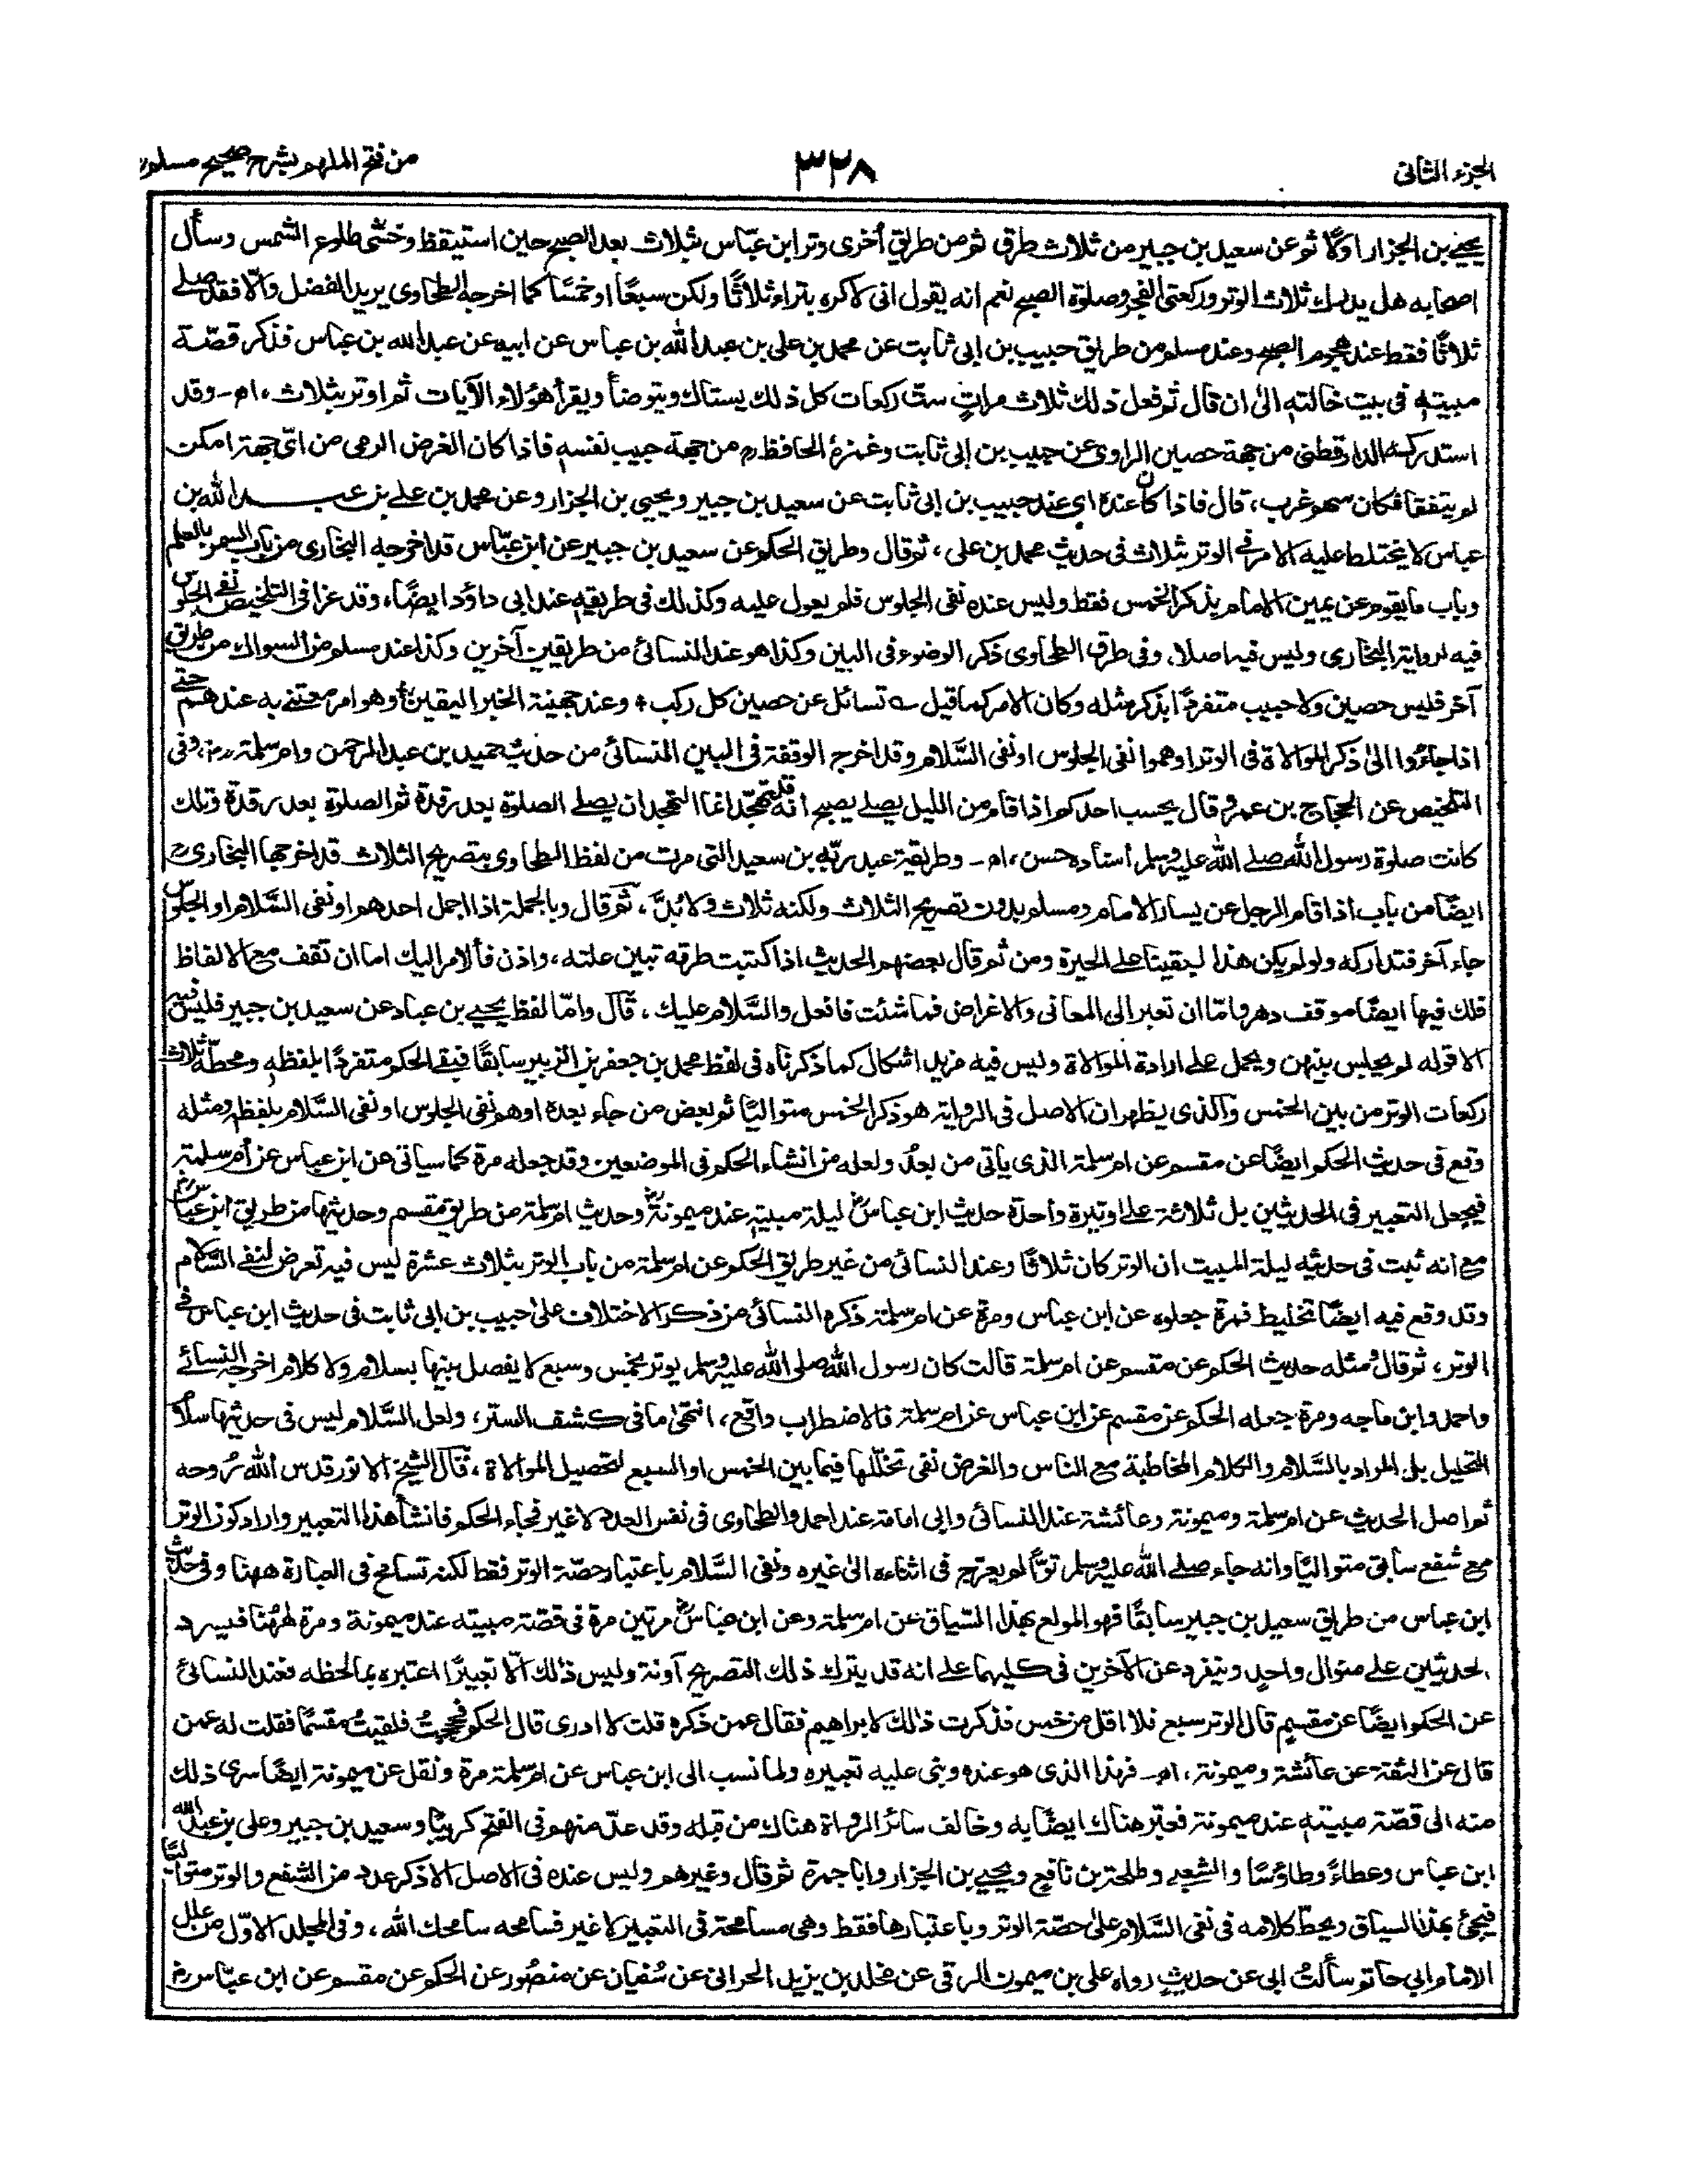 الجزء الثانى
٣٢٨
من فتح الملهم بشرح صحيح مسلم
يحيى بن الجزار اولاً ثم عن سعيد بن جبير من ثلاث طرق ثم من طريق أخرى وتر ابن عباس بثلاث بعد الصبح حين استيقظ وخشى طلوع الشمس وسأل
اصحابه هل يدرك ثلاث الوتر وركعتى الفجر وصلوة الصبح نعم انه يقول انى لاكره بتراء ثلاثًا ولكن سبعًا او خمسًا كما اخرجه الطحاوى يريد الفضل والا فقد صلى
ثلاثًا فقط عند هجوم الصبح وعند مسلم من طريق حبيب بن ابى ثابت عن محمد بن على بن عبد الله بن عباس عن ابيه عن عبد الله بن عباس فذكر قصّة
مبيته فى بيت خالته الى ان قال ثم فعل ذلك ثلاث مرات ست ركعات كل ذلك يستاك ويتوضأ ويقرأ هؤلاء الآيات ثم اوتر بثلاث، اھ - وقد
استدركه الدارقطنى من جهة حصين الراوى عن حبيب بن ابى ثابت وغمزه الحافظ رح من جهة حبيب نفسه فاذا كان الغرض الرمى من اىّ جهة امكن
لم يتفقا فكان سهو غرب، قال فاذا كان عنده اى عند حبيب بن ابى ثابت عن سعيد بن جبير ويحيى بن الجزار وعن محمد بن على بن عبد الله بن
عباس لا يختلط عليه الامر فى الوتر بثلاث فى حديث محمد بن على، ثم قال وطريق الحكم عن سعيد بن جبير عن ابن عبّاس قد اخرجه البخارى من باب السمر بالعلم
وباب ما يقوم عن يمين الامام بذكر الخمس فقط وليس عنده نفى الجلوس فلم يعول عليه وكذلك فى طريقه عند ابى داؤد ايضًا، وقد عزا فى التلخيص نفى الجلوس
فيه لرواية البخارى وليس فيه اصلا، وفى طرق الطحاوى ذكر الوضوء فى البين وكذا هو عند النسائى من طريقين آخرين وكذا عند مسلم من السواك من طريق
آخر فليس حصين ولا حبيب متفردًا بذكر مثله وكان الامر كما قيل ؎ تسائل عن حصين كل ركب ۞ وعند جهينة الخبر اليقين، وهو امر معتنى به عندهم حتى
اذا جاءوا الى ذكر الموالاة فى الوتر اوهموا نفى الجلوس او نفى السَّلام وقد اخرج الوقفة فى البين النسائى من حديث حميد بن عبد الرحمن وام سلمة رض، وفى
التلخيص عن الحجاج بن عمرو قال يحسب احدكم اذا قام من الليل يصلى يصبح انه قد تهجّد انما التهجد ان يصلى الصلوة بعد رقدة ثم الصلوة بعد رقدة وتلك
كانت صلوة رسول الله صلى الله عليه وسلم أسناده حسن، اھ - وطريقة عبد ربّه بن سعيد التى مرت من لفظ الطحاوى بتصريح الثلاث قد اخرجها البخارى رح
ايضًا من باب اذا قام الرجل عن يسار الامام ومسلم بدون تصريح الثلاث ولكنه ثلاث ولا بُدَّ، ثم قال وبالجملة اذا اجمل احدهم او نفى السَّلام او الجلوس
جاء آخر فتداركه ولو لم يكن هذا لبقينا على الحيرة ومن ثم قال بعضهم الحديث اذا كتبت طرقه تبين علته، واذن فالامر اليك اما ان تقف مع الالفاظ
فلك فيها ايضًا موقف دهر وامّا ان تعبر الى المعانى والاغراض فما شئت فافعل والسَّلام عليك، قال وامّا لفظ يحيى بن عباد عن سعيد بن جبير فليس فيه
الا قوله لم يجلس بينهن ويحمل على ارادة الموالاة وليس فيه مزيد اشكال كما ذكرناه فى لفظ محمد بن جعفر بن الزبير سابقًا فبقى الحكم متفردًا بلفظه ومحطّه ثلاث
ركعات الوتر من بين الخمس والذى يظهر ان الاصل فى الرواية هو ذكر الخمس متواليًا ثم بعض من جاء بعده اوهم نفى الجلوس او نفى السَّلام بلفظه ومثله
وقع فى حديث الحكم ايضًا عن مقسم عن ام سلمة الذى ياتى من بعدُ ولعله من انشاء الحكم فى الموضعين وقد جعله مرة كما سياتى عن ابن عباس عن أم سلمة
فيجعل التعبير فى الحديثين بل ثلاثة على وتيرة واحدة حديث ابن عباس رض ليلة مبيته عند ميمونة رض وحديث ام سلمة من طريق مقسم وحديثها من طريق ابن عباس رض
مع انه ثبت فى حديثه ليلة المبيت ان الوتر كان ثلاثًا وعند النسائى من غير طريق الحكم عن ام سلمة من باب الوتر بثلاث عشرة ليس فيه تعرض لنفى السَّلام
وقد وقع فيه ايضًا تخليط فمرة جعلوه عن ابن عباس ومرة عن ام سلمة ذكره النسائى من ذكر الاختلاف على حبيب بن ابى ثابت فى حديث ابن عباس فى
الوتر، ثم قال ومثله حديث الحكم عن مقسم عن ام سلمة قالت كان رسول الله صلى الله عليه وسلم يوتر بخمس وسبع لا يفصل بينها بسلام ولا كلام اخرجه النسائى
واحمد وابن ماجه ومرة جعله الحكم عن مقسم عن ابن عباس عن ام سلمة فالاضطراب واقع، انتهى ما فى كشف الستر، ولعل السَّلام ليس فى حديثها سلام
التحليل بل المراد بالسَّلام والكلام المخاطبة مع الناس والغرض نفى تخلّلها فيما بين الخمس او السبع لتحصيل الموالاة، قال الشيخ الانور قدس الله رُوحه
ثم اصل الحديث عن ام سلمة وميمونة وعائشة عند النسائى وابى امامة عند احمد والطحاوى فى نفس العدد لا غير فجاء الحكم فانشأ هذا التعبير واراد كون الوتر
مع شفع سابق متواليًا وانه جاء صلى الله عليه وسلم توًّا لم يعرّج فى اثنائه الى غيره ونفى السَّلام باعتبار حصّة الوتر فقط لكنه تسامح فى العبارة ههنا وفى حديث
ابن عباس من طريق سعيد بن جبير سابقًا فهو المولع بهذا السّياق عن ام سلمة وعن ابن عباس رض مرتين مرة فى قصّة مبيته عند ميمونة ومرة ههُنا فيسرد
الحديثين على منوال واحد ويتفرد عن الآخرين فى كليهما على انه قد يترك ذلك التصريح آونة وليس ذلك الّا تعبيرًا اعتبره بما لحظه فعند النسائى
عن الحكم ايضًا عن مقسم قال الوتر سبع فلا اقل من خمس فذكرت ذلك لابراهيم فقال عمن ذكره قلت لا ادرى قال الحكم فحججتُ فلقيتُ مقسمًا فقلت له عمن
قال عن الثقة عن عائشة وميمونة، اھ - فهذا الذى هو عنده وبنى عليه تعبيره ولما نسب الى ابن عباس عن ام سلمة مرة ونقل عن ميمونة ايضًا سرى ذلك
منه الى قصّة مبيته عند ميمونة فعبّر هناك ايضًا به وخالف سائر الرواة هناك من قبله وقد عدّ منهم فى الفتح كريبًا وسعيد بن جبير وعلى بن عبد الله
ابن عباس وعطاءً وطاؤسًا والشعبى وطلحة بن نافع ويحيى بن الجزار وابا جمرة ثم قال وغيرهم وليس عنده فى الاصل الا ذكر عدد من الشفع والوتر متواليًا
فيجئ بهذا السياق ويحطّ كلامه فى نفى السَّلام على حصّة الوتر وباعتبارها فقط وهى مسامحة فى التعبير لا غير فسامحه سامحك الله، وفى المجلد الاوّل من علل
الامام ابى حاتم سألتُ ابى عن حديثٍ رواه على بن ميمون الرقى عن مخلد بن يزيد الحرانى عن سُفيان عن منصُور عن الحكم عن مقسم عن ابن عبّاس رض